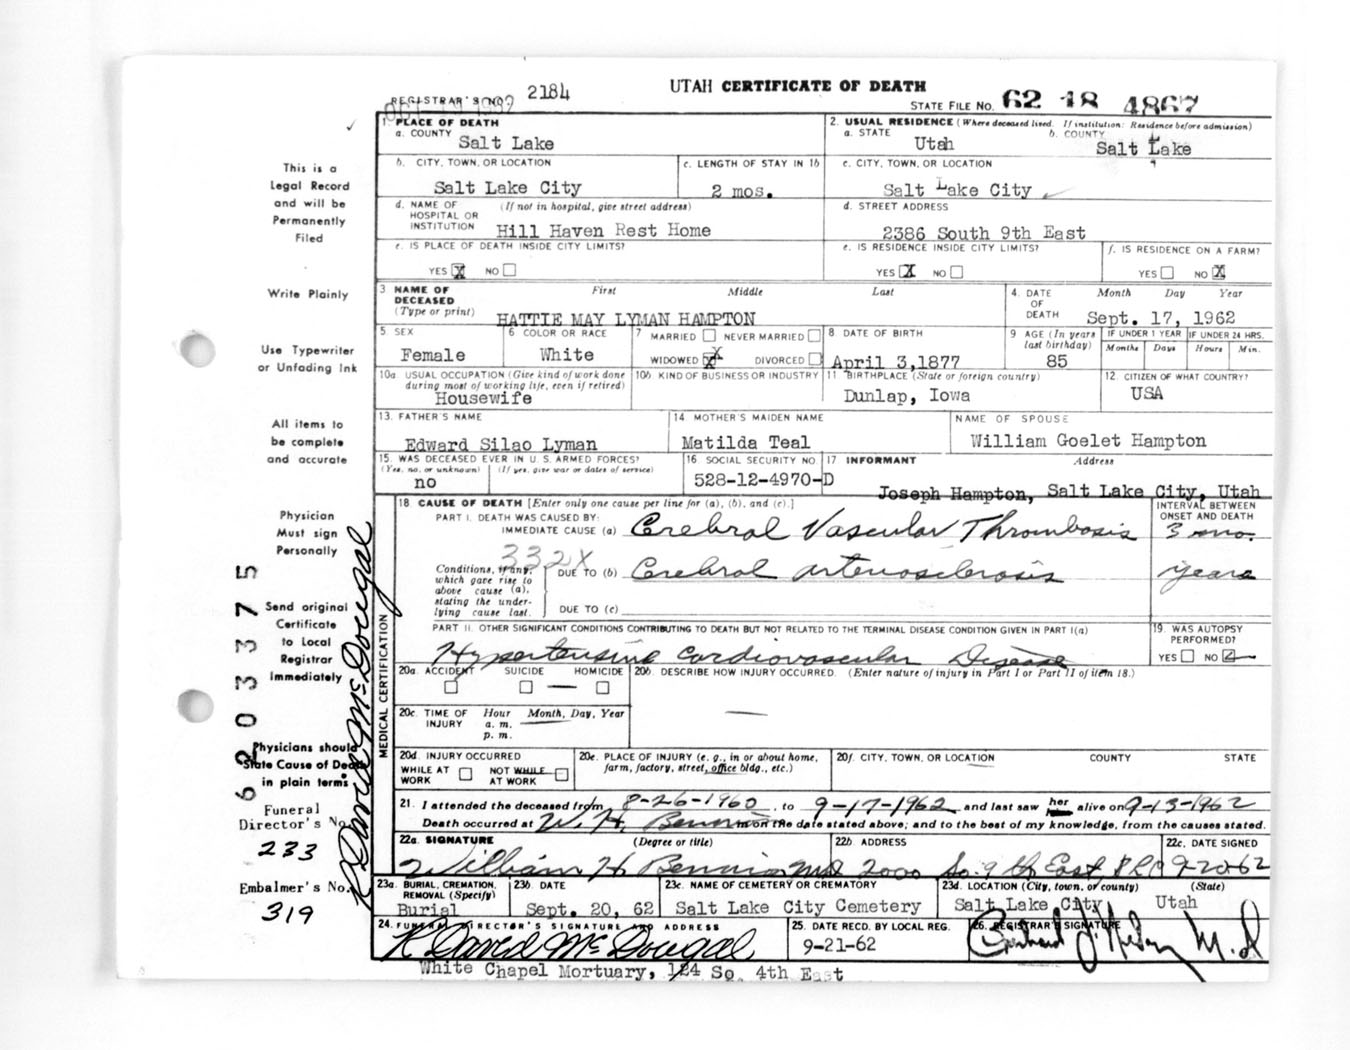 UTAH CERTIFICATE OF DEATH
REGISTRAR'S NO. 2184
STATE FILE NO. 62 18 4867
1. PLACE OF DEATH
a. COUNTY
Salt Lake
2. USUAL RESIDENCE (Where deceased lived. If institution: Residence before admission)
a. STATE
Utah
b. COUNTY
Salt Lake
b. CITY, TOWN, OR LOCATION
Salt Lake City
c. LENGTH OF STAY IN 1b
2 mos.
c. CITY, TOWN, OR LOCATION
Salt Lake City
d. NAME OF HOSPITAL OR INSTITUTION (If not in hospital, give street address)
Hill Haven Rest Home
d. STREET ADDRESS
2386 South 9th East
e. IS PLACE OF DEATH INSIDE CITY LIMITS?
YES X NO
e. IS RESIDENCE INSIDE CITY LIMITS?
YES X NO
f. IS RESIDENCE ON A FARM?
YES NO X
3 NAME OF DECEASED (Type or print)
First Middle Last
HATTIE MAY LYMAN HAMPTON
4. DATE OF DEATH
Month Day Year
Sept. 17, 1962
5. SEX
Female
6 COLOR OR RACE
White
7 MARRIED NEVER MARRIED
WIDOWED X DIVORCED
8 DATE OF BIRTH
April 3,1877
9 AGE (In years last birthday)
85
IF UNDER 1 YEAR
Months Days
IF UNDER 24 HRS.
Hours Min.
10a. USUAL OCCUPATION (Give kind of work done during most of working life, even if retired)
Housewife
10b. KIND OF BUSINESS OR INDUSTRY
11 BIRTHPLACE (State or foreign country)
Dunlap, Iowa
12. CITIZEN OF WHAT COUNTRY?
USA
13. FATHER'S NAME
Edward Silao Lyman
14 MOTHER'S MAIDEN NAME
Matilda Teal
NAME OF SPOUSE
William Goelet Hampton
15. WAS DECEASED EVER IN U.S. ARMED FORCES?
(Yes, no. or unknown) (If yes, give war or dates of service)
no
16 SOCIAL SECURITY NO.
528-12-4970-D
17 INFORMANT Address
Joseph Hampton, Salt Lake City, Utah
18 CAUSE OF DEATH [Enter only one cause per line for (a), (b), and (c).]
INTERVAL BETWEEN ONSET AND DEATH
PART I. DEATH WAS CAUSED BY:
IMMEDIATE CAUSE (a) Cerebral Vascular Thrombosis
3 mo.
332X
Conditions, if any, which gave rise to above cause (a), stating the underlying cause last.
DUE TO (b) Cerebral arteriosclerosis
years
DUE TO (c)
PART II. OTHER SIGNIFICANT CONDITIONS CONTRIBUTING TO DEATH BUT NOT RELATED TO THE TERMINAL DISEASE CONDITION GIVEN IN PART I(a)
Hypertensive Cardiovascular Disease
19. WAS AUTOPSY PERFORMED?
YES NO
MEDICAL CERTIFICATION
20a. ACCIDENT SUICIDE HOMICIDE
20b. DESCRIBE HOW INJURY OCCURRED. (Enter nature of injury in Part I or Part II of item 18.)
20c. TIME OF INJURY
Hour Month, Day, Year
a. m.
p. m.
20d. INJURY OCCURRED
WHILE AT WORK NOT WHILE AT WORK
20e. PLACE OF INJURY (e. g., in or about home, farm, factory, street, office bldg., etc.)
20f. CITY, TOWN, OR LOCATION COUNTY STATE
21. I attended the deceased from 8-26-1960, to 9-17-1962 and last saw her alive on 9-13-1962
Death occurred at W. H. m on the date stated above; and to the best of my knowledge, from the causes stated.
22a. SIGNATURE (Degree or title)
William H.
22b. ADDRESS
2000 So. 9th East SLC
22c. DATE SIGNED
9-20-62
23a. BURIAL, CREMATION, REMOVAL (Specify)
Burial
23b. DATE
Sept. 20, 62
23c. NAME OF CEMETERY OR CREMATORY
Salt Lake City Cemetery
23d. LOCATION (City, town, or county) (State)
Salt Lake City Utah
24. FUNERAL DIRECTOR'S SIGNATURE AND ADDRESS
R. David McDougal
White Chapel Mortuary, 124 So. 4th East
25. DATE RECD. BY LOCAL REG.
9-21-62
26. REGISTRAR'S SIGNATURE
This is a
Legal Record
and will be
Permanently
Filed
Write Plainly
Use Typewriter
or Unfading Ink
All items to
be complete
and accurate
Physician
Must sign
Personally
Send original
Certificate
to Local
Registrar
Immediately
Physicians should
State Cause of Death
in plain terms
Funeral
Director's No.
233
Embalmer's No.
319
6203375
R David McDougal